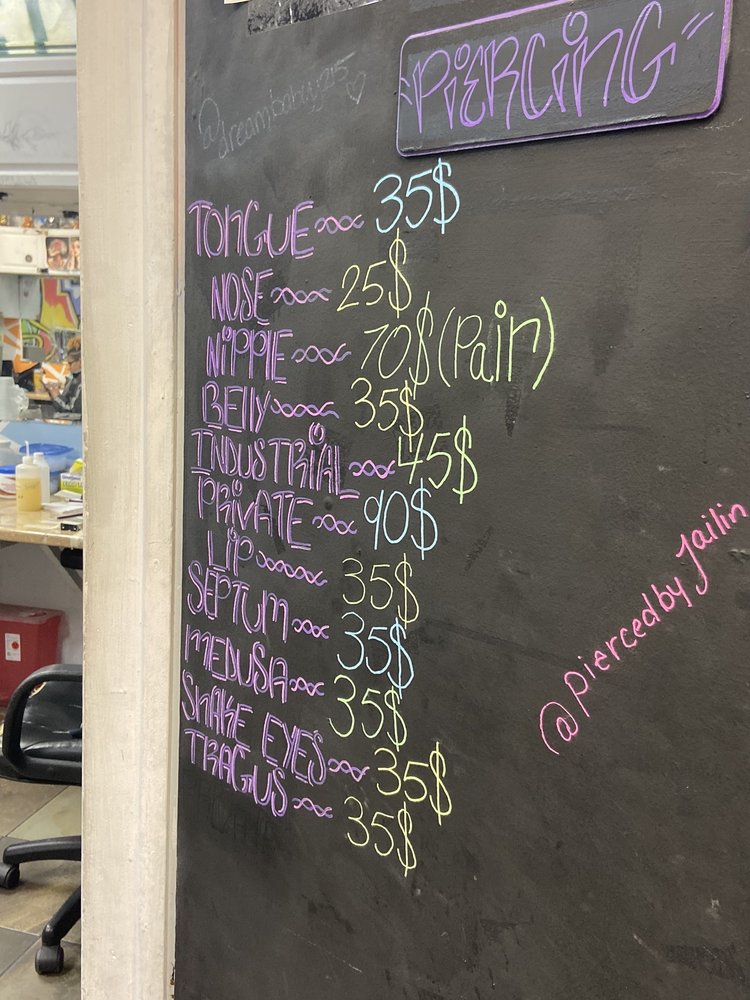 "PiERCinG"
@dreambaby25
TONGUE 35$
NOSE 25$
NiPPlE 70$ (Pair)
BElly 35$
INDUSTRiAL 45$
PRiVATE 90$
LiP 35$
SEPTUM 35$
MEDUSA 35$
SNAKE EYES 35$
TRAGUS 35$
@piercedby Jailin